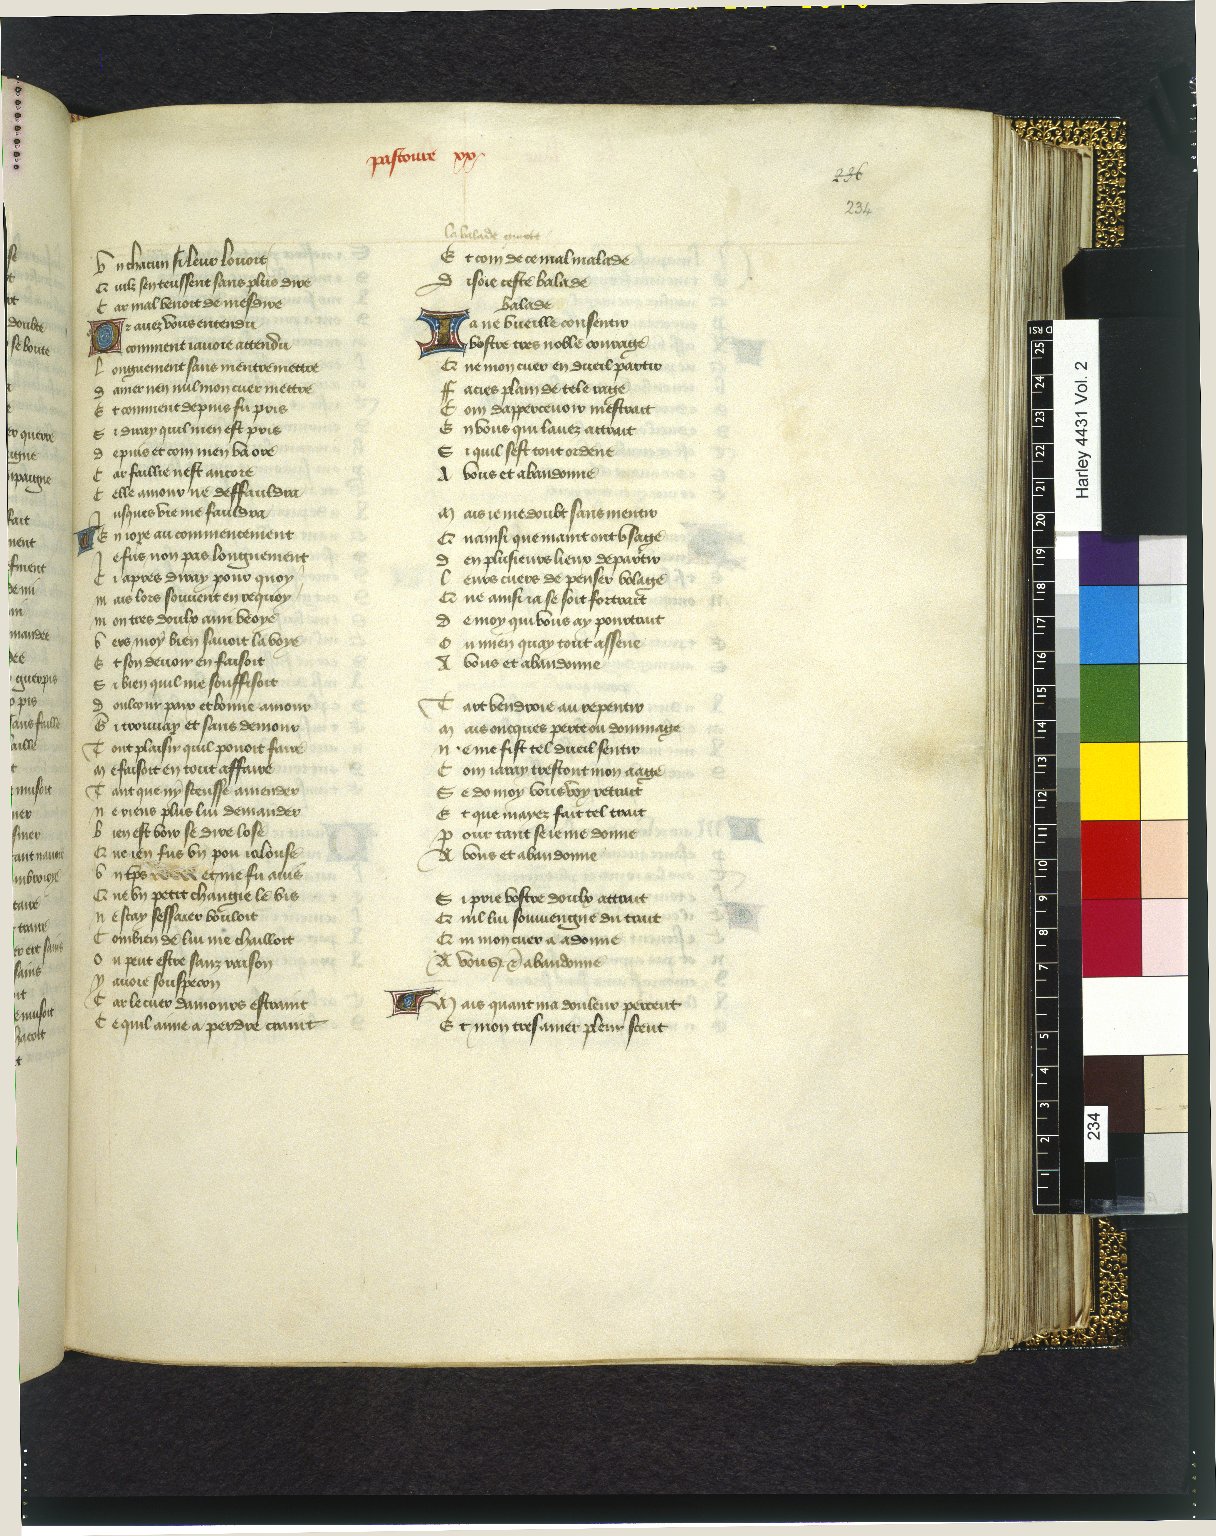 pastoure xx
236
234
la balade
Un chacun si leur louoit
Quilz sen teussent sans plus dire
Car mal venoit de mesdire
Or auez vous entendu
comment iauoie attendu
Longuement sans mentremettre
damer nen nul mon cuer mettre
Et comment depuis fu pris
Si diray quil men est pris
depuis et com men va ore
Car faillie nest ancore
Celle amour ne deffauldra
Jusques vie me fauldra
En ioye au commencement
Je fus non pas longuement
Ci apres diray pour quoy
mais lors souuent en requoy
mon tres doulx ami veoye
Vers moy bien sauoit la voye
Et son deuoir en faisoit
Si bien quil me souffisoit
doulcour paix et bonne amour
Gi trouuay et sans demour
Tout plaisir quil pouoit faire
me faisoit en tout affaire
Tant que ny sceusse amender
ne riens plus lui demander
bien est voir se dire lose
Que ien fus un pou ialouse
Un tps et me fu auis
Que un petit changie le vis
ne scay sessaier vouloit
Combien de lui me chailloit
On peut estre sanz raison
Y auoie souspecon
Car le cuer damours estraint
Ce quil aime a perdre craint
Et com de ce mal malade
disoie ceste balade
balade
Ja ne vueille consentir
vostre tres noble courage
Que mon cuer en dueil partir
Facies plain de tele rage
Com dappercevoir mestrait
En vous qui lauez attrait
Si quil sest tout ordene
A vous et abandonne
mais ie me doubt sans mentir
Quainsi que maint ont usage
den plusieurs lieux departir
Leurs cuers de penser volage
Que ainsi ia se soit fortrait
de moy qui vous ay pourtrait
Ou mien quay tout assene
A vous et abandonne
Tart vendroie au repentir
mais oncques perte ou dommage
ne me fist tel dueil sentir
Com iaray trestout mon aage
Se de moy vous voy retrait
Et que mayez fait tel trait
Pour tant se ie me donne
A vous et abandonne
Si prie vostre doulx attrait
Quil lui souuiengne du trait
Qui mon cuer a adonne
A vous & abandonne
Mais quant ma douleur percent
Et mon tres amer pleur sceut
Harley 4431 Vol. 2
234